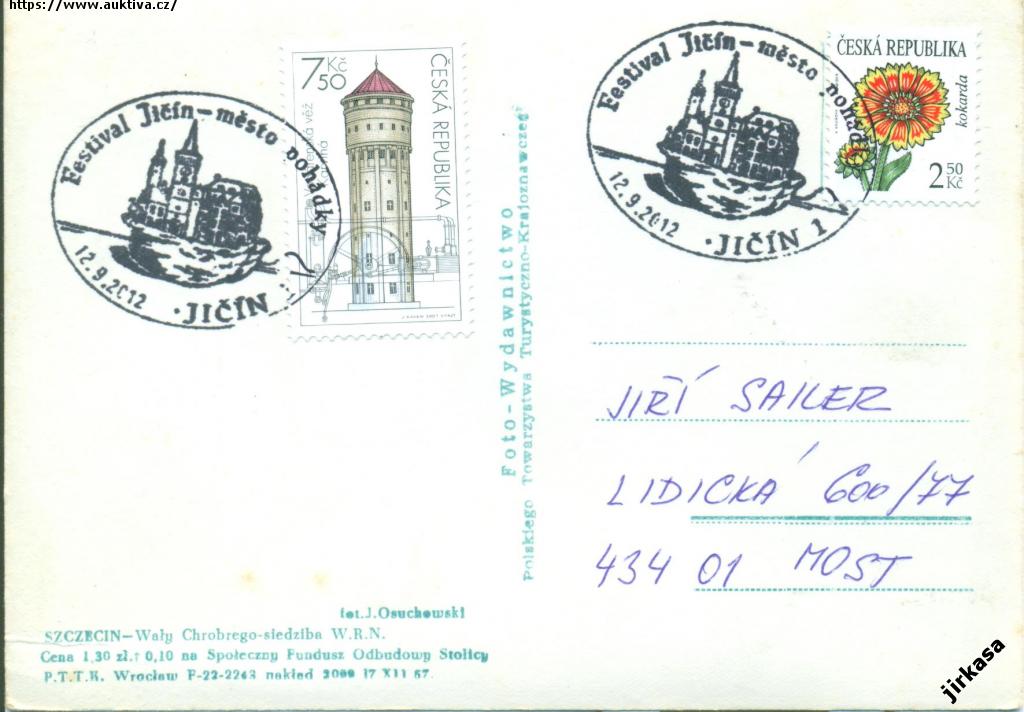 https://www.auktiva.cz/
Festival Jičín – město pohádky
12.9.2012
·JIČÍN 1
750 Kč
ČESKÁ REPUBLIKA
Festival Jičín – město pohádky
12.9.2012
·JIČÍN 1
ČESKÁ REPUBLIKA
kokarda
2 50 Kč
Foto-Wydawnictwo
Polskiego Towarzystwa Turystyczno-Krajoznawczego
JIŘÍ SAILER
LIDICKÁ 600/77
434 01 MOST
fot.J.Osuchowski
SZCZECIN—Wały Chrobrego-siedziba W.R.N.
Cena 1,30 zł.+ 0,10 na Społeczny Fundusz Odbudowy Stolicy
P.T.T.K. Wrocław F-22-2243 nakład 2000 17 XII 67.
jirkasa